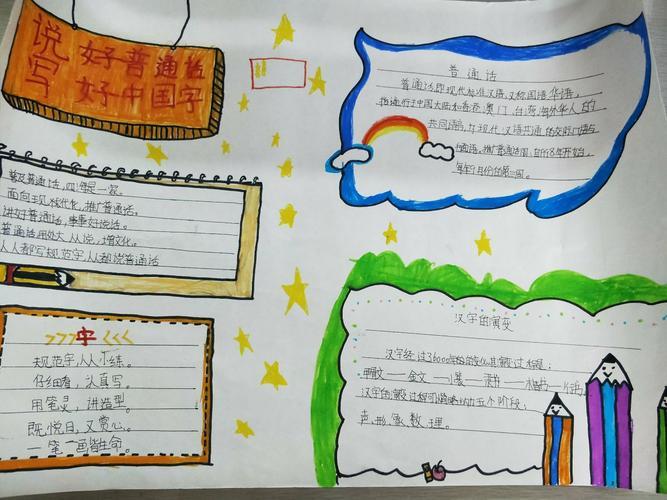 说 好普通话
写 好中国字
普及普通话,四海是一家。
面向现代化,推广普通话。
讲好普通话,事事好说话。
普通话用处大,人人说,增文化。
人人都写规范字,人人都说普通话
字
规范字,人人练。
仔细看,认真写。
用笔灵,讲造型。
既悦目,又赏心。
一笔一画皆生命。
普通话
普通话即现代标准汉语,又称国语、华语,
指通行于中国大陆和香港、澳门、台湾、海外华人的
共同语言,
推广普通话周,自1998年开始,
每年9月份的第三周。
汉字的演变
汉字经过了3600多年的变化,其演变过程是:
甲骨文——金文——小篆——隶书——楷书——行书,
汉字的演变过程可归略为五个阶段:
声、形、象、数、理。